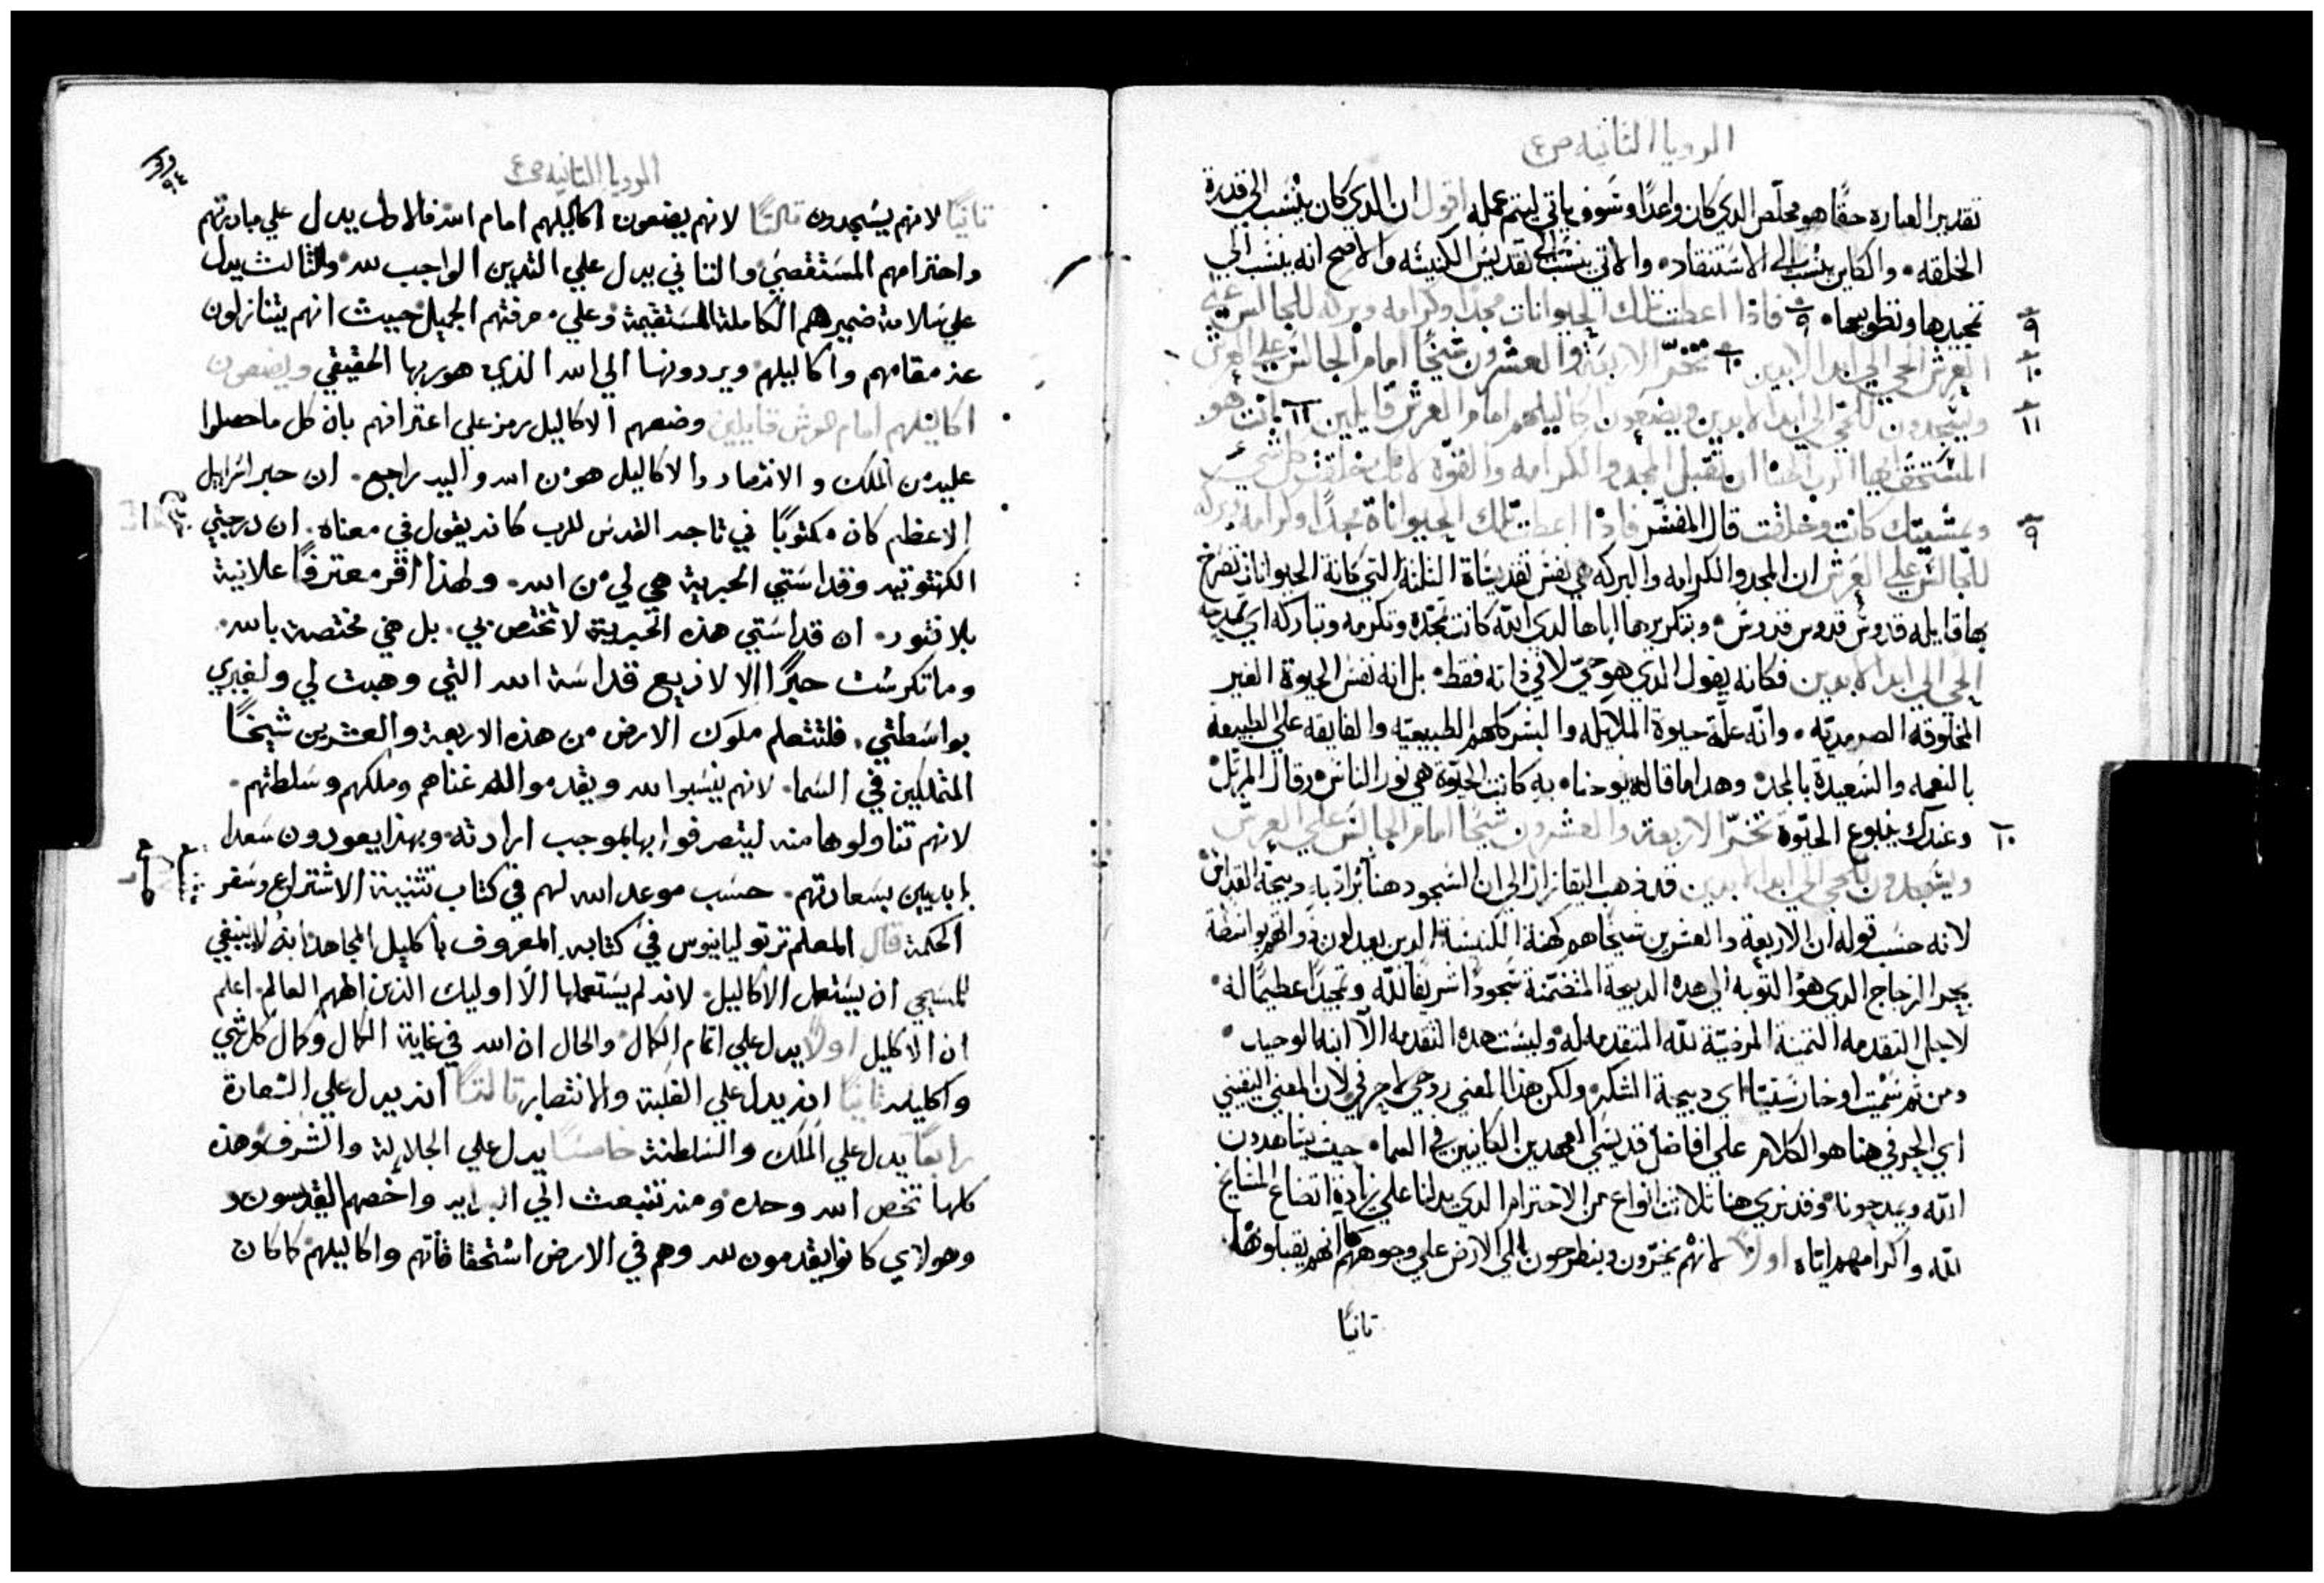 الرويا الثانيه ص٤
تقدير العباره حقًا هو مخلّص الدي كان واعدًا وسَوف ياتي ليتم عمله اقول ان الدي كان ينْسَب الي قدرة
الخلقه. والكاين ينْسَب الي الاستنقاد. والاتي ينْسَب الي تقديس الكنيسَه والاصح انه ينسَب الي
تمجيدها وتطويبها. ٩ فاذا اعطت تلك الحيوانات مجدًا وكرامه وبركه للجالس علي
٩
العرش الحي الي ابد الابدين ١٠ تخرّ الاربعة والعشرون شيخًا امام الجالس علي العرش
١٠
ويسَجدون للحي الي ابد الابدين ويضعون اكاليلهم امام العرش قايلين ١١ انت هو
١١
المستحق ايها الرب الهنا ان تقبل المجد والكرامه والقوّه لانك خلقت كل شي
وبمشيتك كانت وخلقت قال المفسّر فاذا اعطت تلك الحيواناة مجدًا وكرامه وبركه
٩
للجالس علي العرش ان المجد والكرامه والبركه هي نفس تقديساة الثلثة التي كانة الحيوانات تصرخ
بها قايله قدوس قدوس قدوس وبتكريرها اياها لدي الله كانت تمجّده وتكرمه وتباركه اي تمدحه
الحي الي ابد الابدين فكانه يقول الدي هو حيّ لا في ذاته فقط. بل انه نفس الحيوة الغير
المخلوقه الصرمديّه. وانّه علّة حيوة الملايكه والبشر كلهم الطبيعيّه والفايقه علي الطبيعه
بالنعمه والسَعيدة بالمجد. وهدا ما قاله يوحنا. به كانت الحيّوة هي نور الناس وقال المرتل
وعندك ينبوع الحيّوة تخرّ الاربعة والعشرون شيخًا امام الجالس علي العرش
١٠
ويسَجدون للحي الي ابد الابدين قد ذهب اليقازار الي ان السَجود هنا يُراد به دبيحة القداس
لانه حسَب قوله ان الاربعة والعشرين شيخًا هم كهنة الكنيسَة الدين يعدلون وانهم بواسَطة
بحر الزجاج الدي هو التوبه الي هده الدبيحة المتضمّنة سَجودًا شريفًا لله وتمجيدًا عظيمًا له.
لاجل التقدمه الثمينة المرضيّة لله المتقدمه له وليسَت هده التقدمه الّا ابنه الوحيد.
ومن ثم سَمّيت اوخارسَتيّا اي دبيحة الشكر ولكن هذا المعني روحي لا حرفي لان المعني اليقيني
اي الحرفي هنا هو الكلام علي افاضل قديسَي العهدين الكاينين في السما. حيث يشاهدون
الله ويمدحونه وقد نري هنا ثلاثة انواع من الاحترام الدي يدلنا علي زيادة اتضاع المشايخ
لله واكرامهم اياه اولًا لانهم يخرّون وينطرحون الي الارض علي وجوههم كانهم يقبلونها.
تانيًا
الرويا الثانيه ص٤
٩٤
تانيًا لانهم يسَجدون تالتًا لانهم يضعون اكاليلهم امام الله فالاول يدل علي مبادرتهم
واحترامهم المسَتقصي والتاني يدل علي التدين الواجب لله والثالث يدل
علي سَلامة ضميرهم الكاملة المسَتقيمة وعلي معرفتهم الجميل حيث انهم يتنازلون
عن مقامهم واكاليلهم ويردونها الي الله الذي هو ربها الحقيقي ويضعون
اكاليلهم امام عرش قايلين وضعهم الاكاليل رمز علي اعترافهم بان كل ما حصلوا
عليه من الملك والانتصار والاكاليل هو من الله واليه راجع. ان حبر اسَراييل
الاعظم كان مكتوبًا في تاجه القدس للرب كانه يقول في معناه. ان درجتي
الكهنوتيه وقداسَتي الحبرية هي لي من الله. ولهذا اقر معترفًا علانية
بلا فتور. ان قداسَتي هذه الحبرية لا تختص بي. بل هي مختصة بالله.
وما تكرسَت حبرًا الا لاذيع قداسَة الله التي وهبت لي ولغيري
بواسَطتي. فلتتعلم ملوك الارض من هذه الاربعة والعشرين شيخًا
المتملكين في السَما. لانهم ينسَبوا لله ويقدموا له غناهم وملكهم وسَلطتهم.
لانهم تناولوها منه ليتصرفوا بها بموجب ارادته وبهذا يعودون سَعدا
ابديين بسَعادتهم. حسَب موعد الله لهم في كتاب تثنية الاشتراع وسَفر
الحكمة قال المعلم ترتوليانيوس في كتابه المعروف باكليل المجاهد انه لا ينبغي
للمسَيحي ان يسَتعمل الاكاليل. لانه لم يسَتعملها الّا اوليك الذين الههم العالم. اعلم
ان الاكليل اولًا يدل علي اتمام الكمال والحال ان الله في غاية الكمال وكمال كل شي
واكليله ثانيًا انه يدل علي الغلبة والانتصار تالتًا انه يدل علي السَعادة
رابعًا يدل علي الملك والسَلطنة خامسًا يدل علي الجلالة والشرف وهذه
كلها تخص الله وحده ومنه تنبعث الي البرايه واخصهم القديسون
وهولاي كانوا يقدمون لله وهم في الارض اسْتحقاقاتهم واكاليلهم كما كان